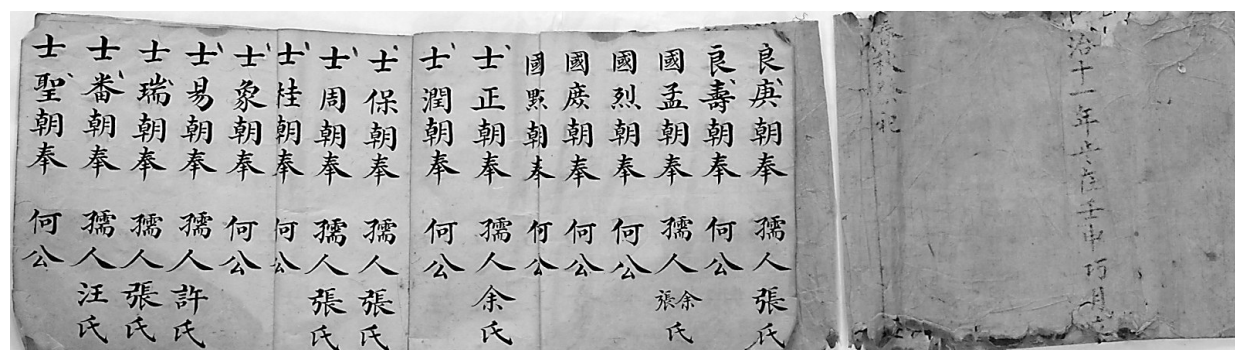 治十一年歲在壬申巧月
祀
良庚朝奉 孺人張氏
良壽朝奉 何公
國孟朝奉 孺人余張氏
國烈朝奉 何公
國慶朝奉 何公
國點朝奉 何公
士正朝奉 孺人余氏
士潤朝奉 何公
士保朝奉 孺人張氏
士周朝奉 孺人張氏
士桂朝奉 何公
士象朝奉 何公
士易朝奉 孺人許氏
士瑞朝奉 孺人張氏
士番朝奉 孺人汪氏
士聖朝奉 何公